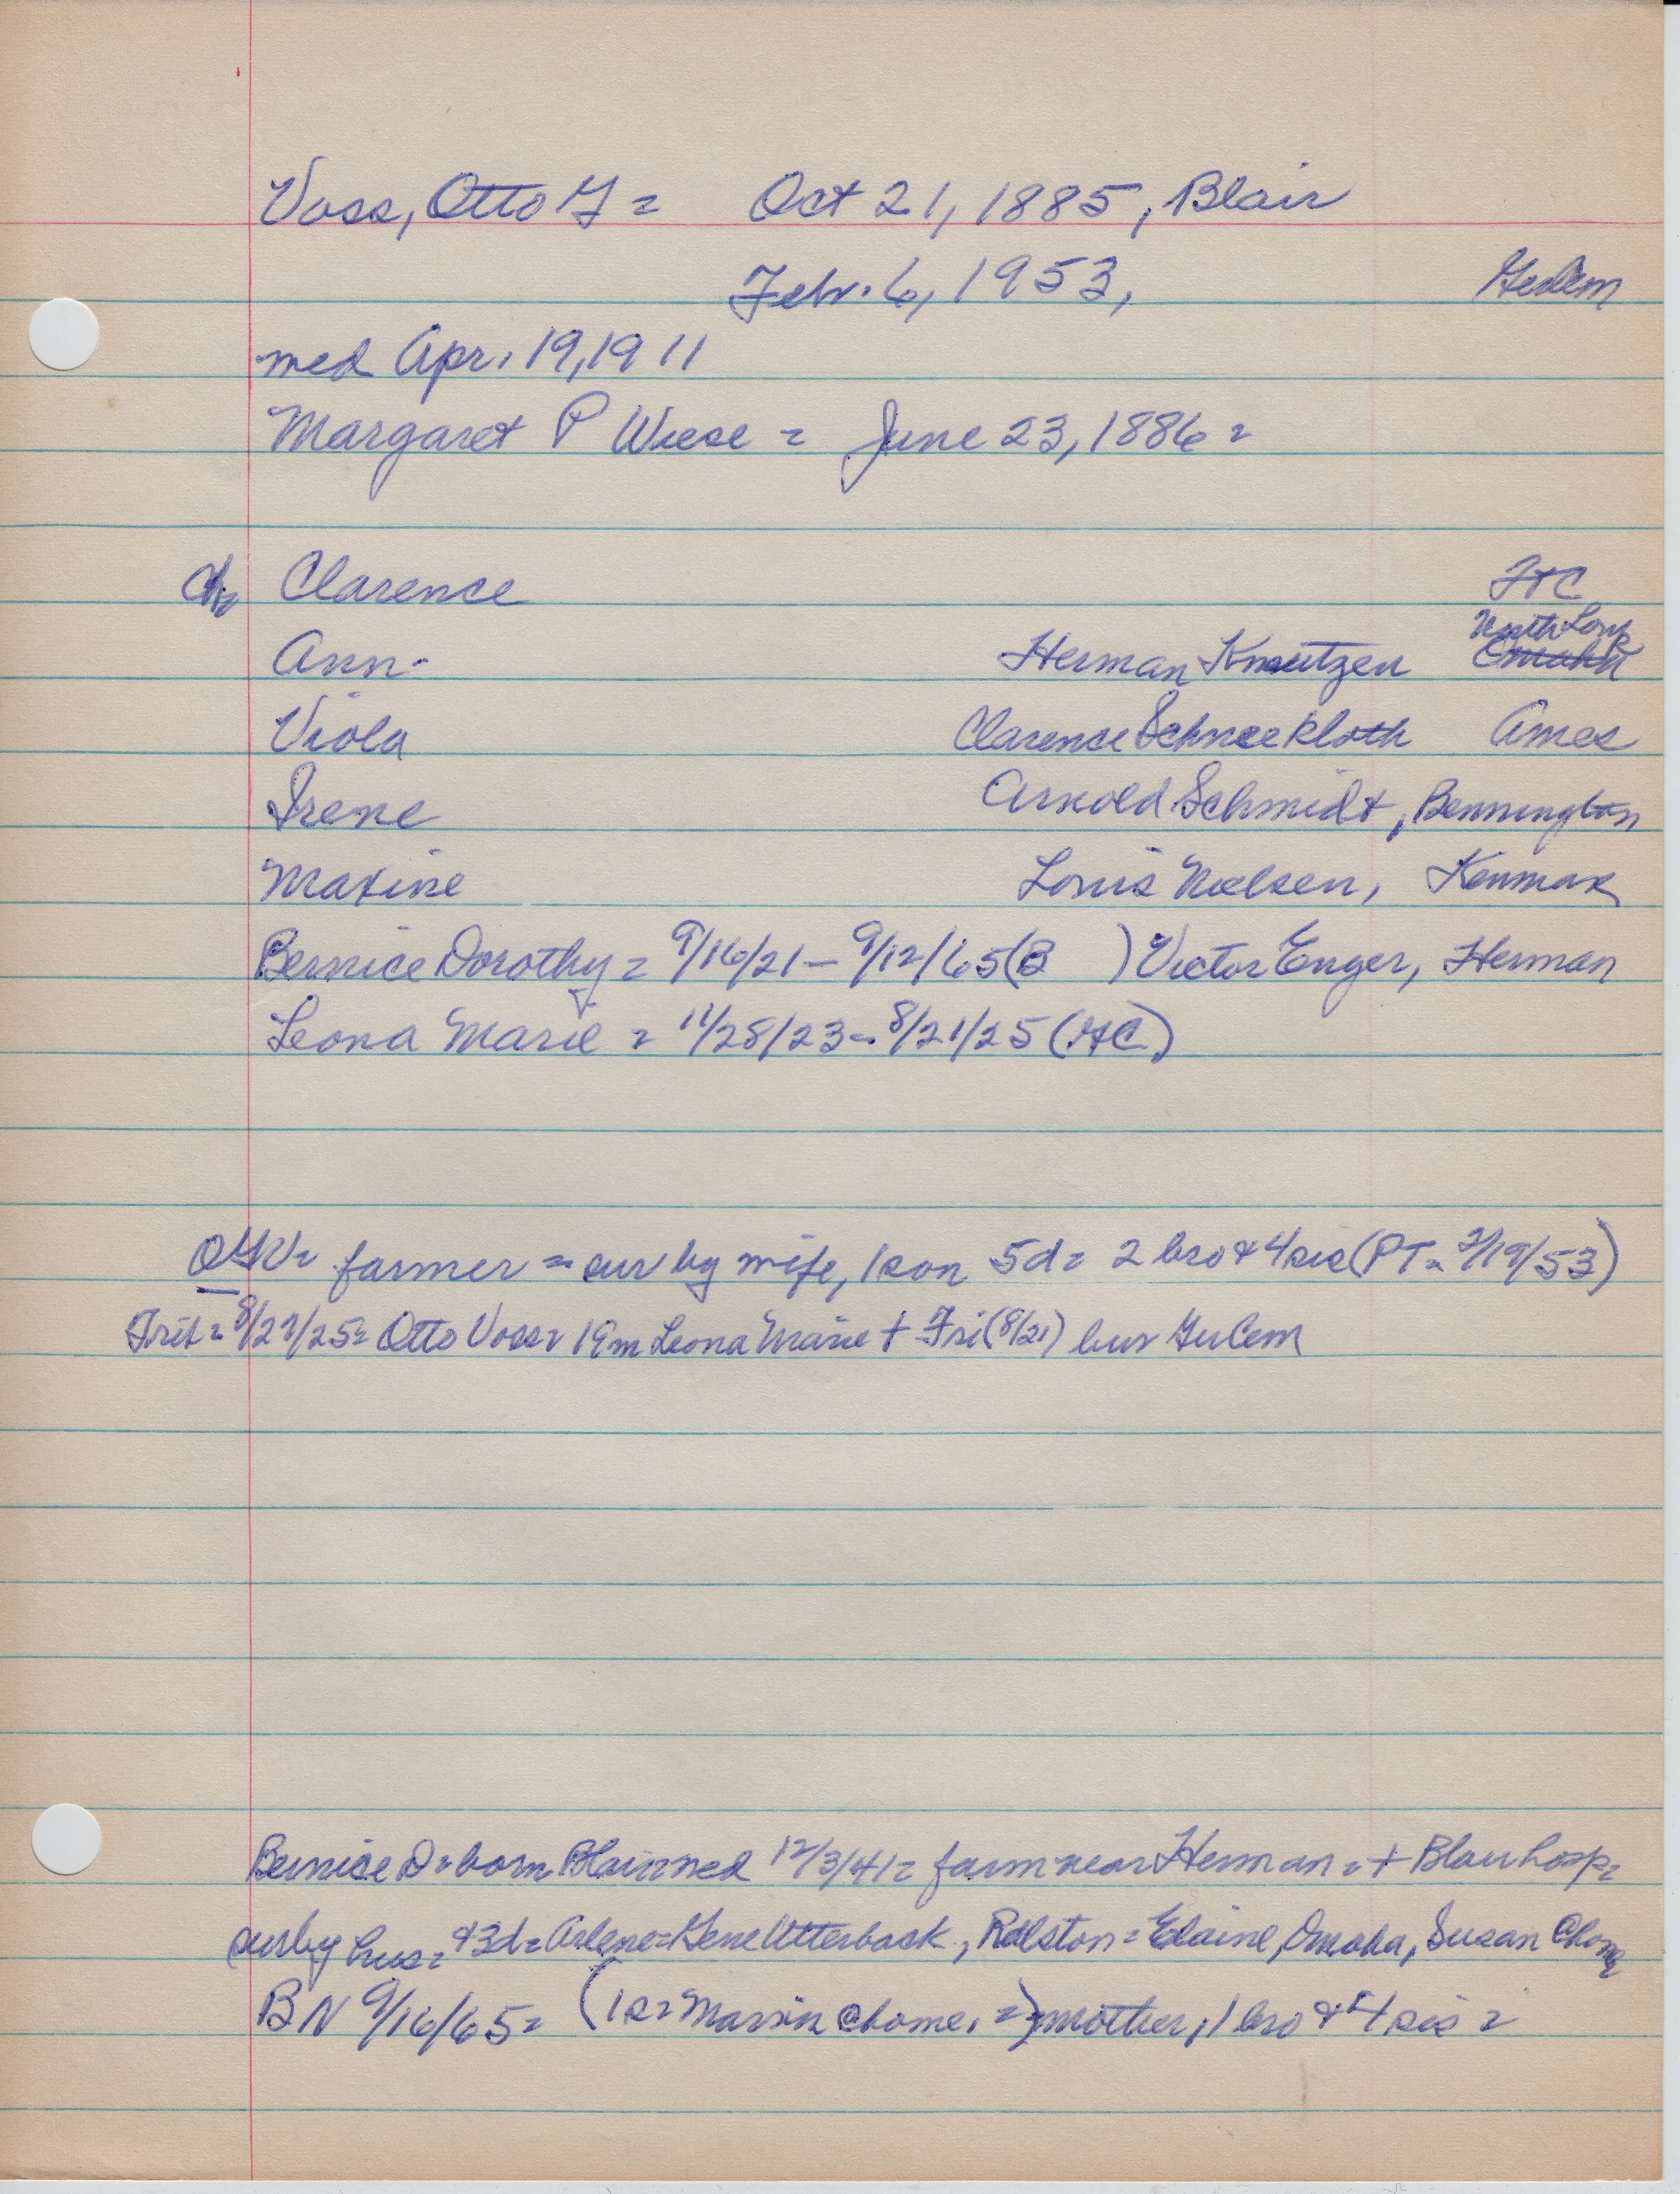 Voss, Otto G = Oct 21, 1885, Blair
Febr. 6, 1953,
med Apr. 19, 1911
Margaret P Wiese = June 23, 1886 =
ch= Clarence FtC
North Loup
Ann - Herman Kneutzen Omaha
Viola Clarence Schneekloth Ames
Irene Arnold Schmidt, Bennington
Maxine Louis Nielsen, Kenmar
Bernice Dorothy = 9/16/21 - 9/12/65 (B ) Victor Enger, Herman
Leona Marie = 11/28/23 - 8/21/25 (HC)
OGV= farmer = sur by wife, 1 son 5d = 2 bro & 4 sis (PT = 2/19/53)
8/27/25 = Otto Voss = 19m Leona Marie + Fri (8/21) bur GerCem
Bernice D = born Blair med 12/3/41 = farm near Herman = + Blair hosp =
surby hus = &3d = Arlene = Gene Utterback, Ralston = Elaine, Omaha, Susan @home
BN 9/16/65 = (1s = Marvin @home. =) mother, 1 bro & 4 sis =